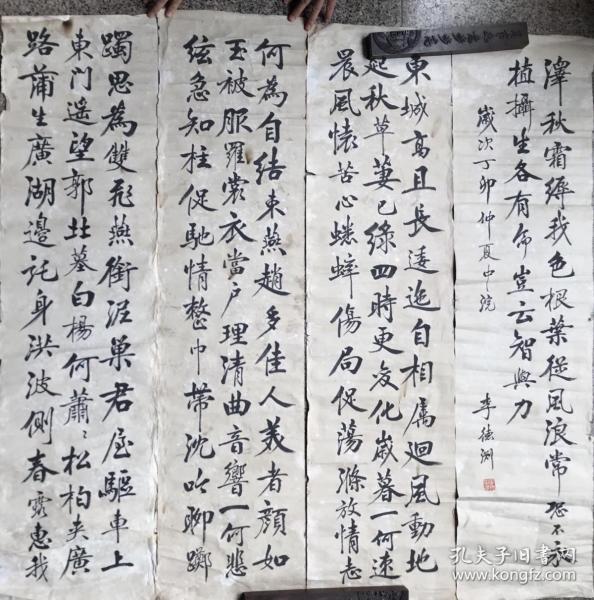 東城高且長逶迤自相属迴風動地
起秋草萋已綠四時更变化歲暮一何速
晨風懷苦心蟋蟀傷局促蕩滌放情志
何為自結束燕趙多佳人美者顏如
玉被服羅裳衣當户理清曲音響一何悲
絃急知柱促馳情整巾帶沈吟聊躑
躅思為雙飛燕銜泥巢君屋驅車上
東門遥望郭北墓白楊何蕭〻松柏夾廣
路蒲生廣湖邊託身洪波側春露惠我
澤秋霜縟我色根葉從風浪常恐不永
植攝生各有命豈云智與力
歲次丁卯仲夏中浣
李德
孔夫子旧书网
www.kongfz.com